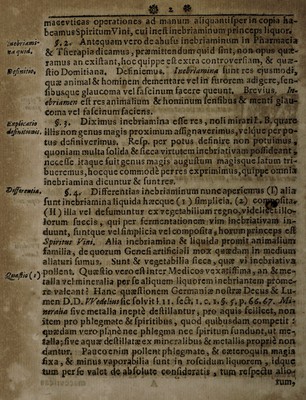 2
maceuticas operationes ad manum aliquantisper in copia ha-
beamus Spiritum Vini, cui inest inebriaminum princeps liquor.
Inebriami-
na quid.
§. 2. Antequam vero de abusu inebriaminum in Pharmacia
& Therapia dicamus, præmittendum quid sint, non opus quæ-
ramus an existant, hoc quippe est extra controversiam, & quæ-
Definitio,
stio Domitiana. Definiemus. Inebriamina sunt res ejusmodi,
quæ animal & hominem dementare vel in furorem adigere, sen-
sibusque glaucoma vel fascinum facere queunt. Brevius. Ine-
briamen est res animalium & hominum sensibus & menti glau-
coma vel fascinum faciens.
Explicatio
definitionis.
§. 3. Diximus inebriamina esse res, noli mirari L. B. quare
illis non genus magis proximum assignaverimus, velque per po-
tus definiverimus. Resp. per potus definire non potuimus,
quoniam multa solida & sicca virtutem inebriativam possideant,
necesse itaque fuit genus magis augustum magisque latum tri-
bueremus, hocque commode per res exprimimus, quippe omnia
inebriamina dicuntur & sunt res.
Differentia.
§. 4. Differentias inebriaminum nunc aperiemus (I) alia
sunt inebriamina liquida hæcque (1) simplicia. (2) composita.
(II) illa vel desumuntur ex vegetabilium regno, videlicet illo-
rum fæcis, qui per fermentationem vim inebriativam in-
duunt, suntque vel simplicia vel composita, horum princeps est
Spiritus Vini. Alia inebriamina & liquida promit animalium
familia, de quorum Generis artificiali mox quædam in medium
allaturi sumus. Sunt & vegetabilia sicca, quæ vi inebriativa
Quæstio (1)
pollent. Quæstio vero est inter Medicos vexatissima, an & me-
talla vel mineralia per se aliquem liquorem inebriantem prome-
re valeant? Hanc quæstionem Germaniæ nostræ Decus & Lu-
men D.D. Wedelius sic solvit l. 11. sect. 1. c. 1. §. 5. p. 66. 67. Mi-
neralia sive metalla inepte destillantur, pro aquis scilicet, non
item pro phlegmate & spiritibus, quod quibusdam competit:
quædam vero plane nec phlegma nec spiritum fundunt, ut me-
talla; sive aquæ destillatæ ex mineralibus & metallis proprie non
dantur. Pauco enim pollent phlegmate, & cæteroquin magis
fixa, & minus vaporabilia sunt in roscidum liquorem, idque
tum per se valet de absolute consideratis, tum respectu alio-
rum,